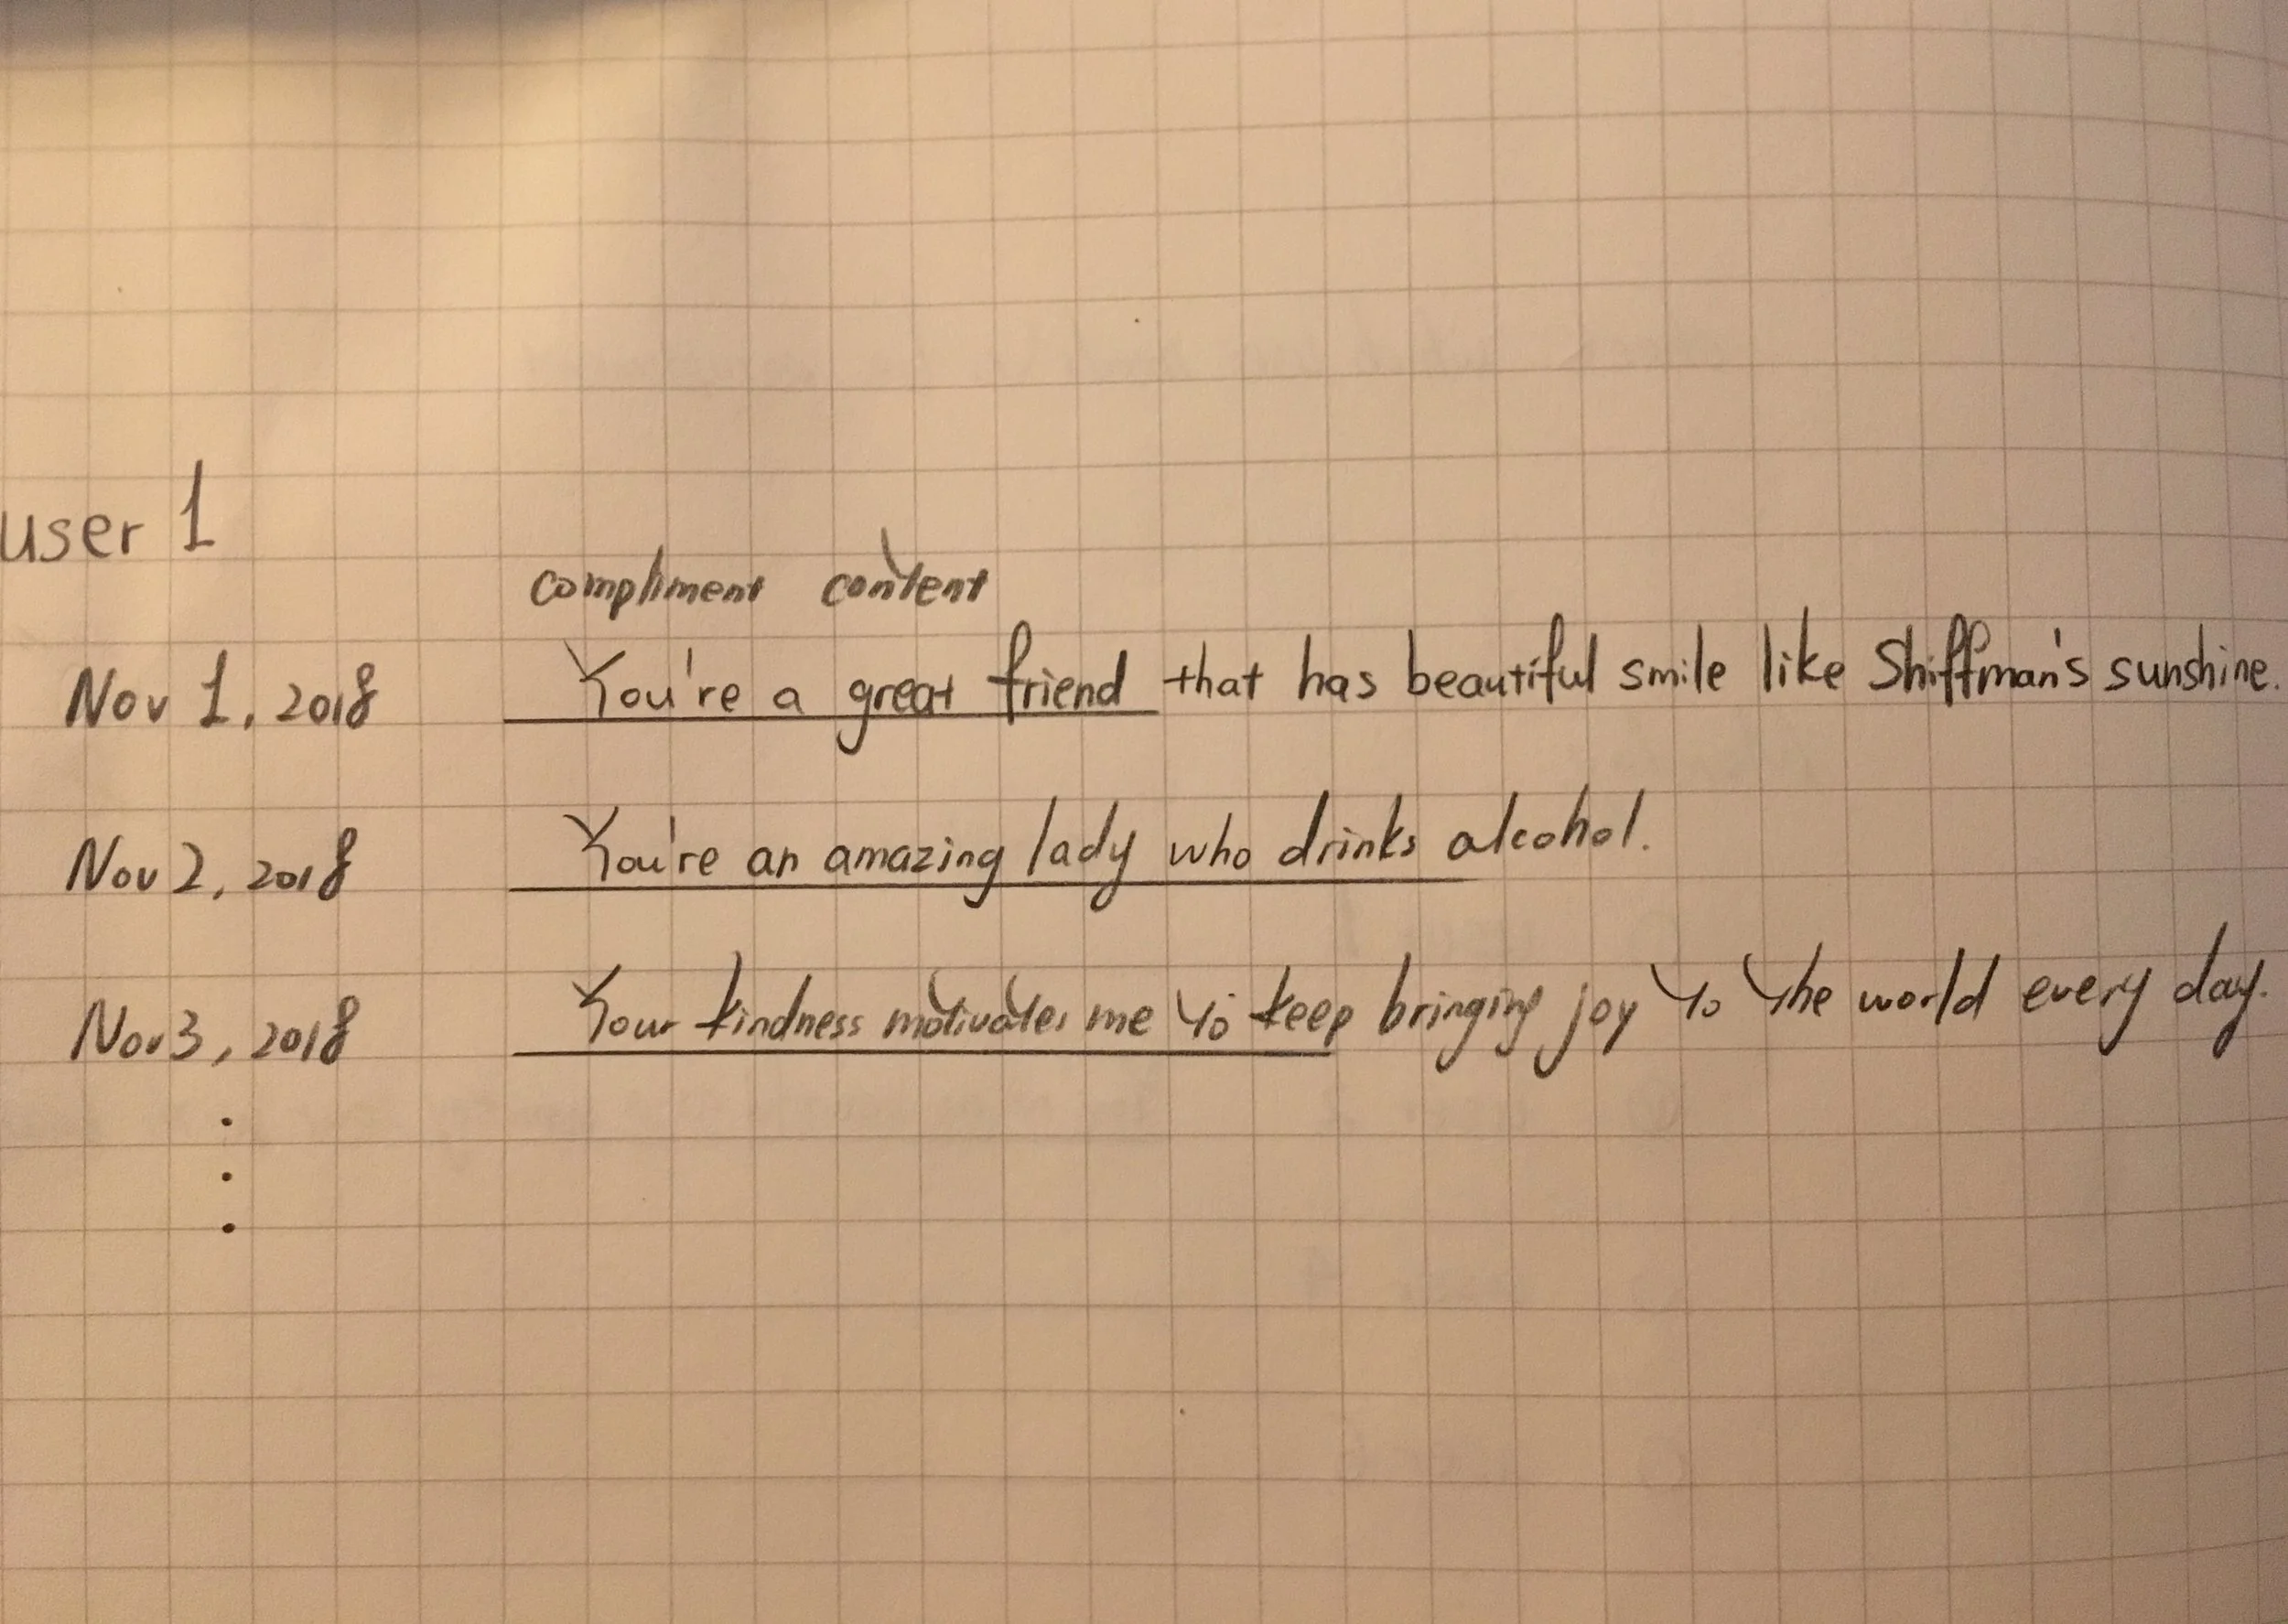 user 1
compliment content
Nov 1, 2018 You're a great friend that has beautiful smile like Shiffman's sunshine.
Nov 2, 2018 You're an amazing lady who drinks alcohol.
Nov 3, 2018 Your kindness motivates me to keep bringing joy to the world every day.